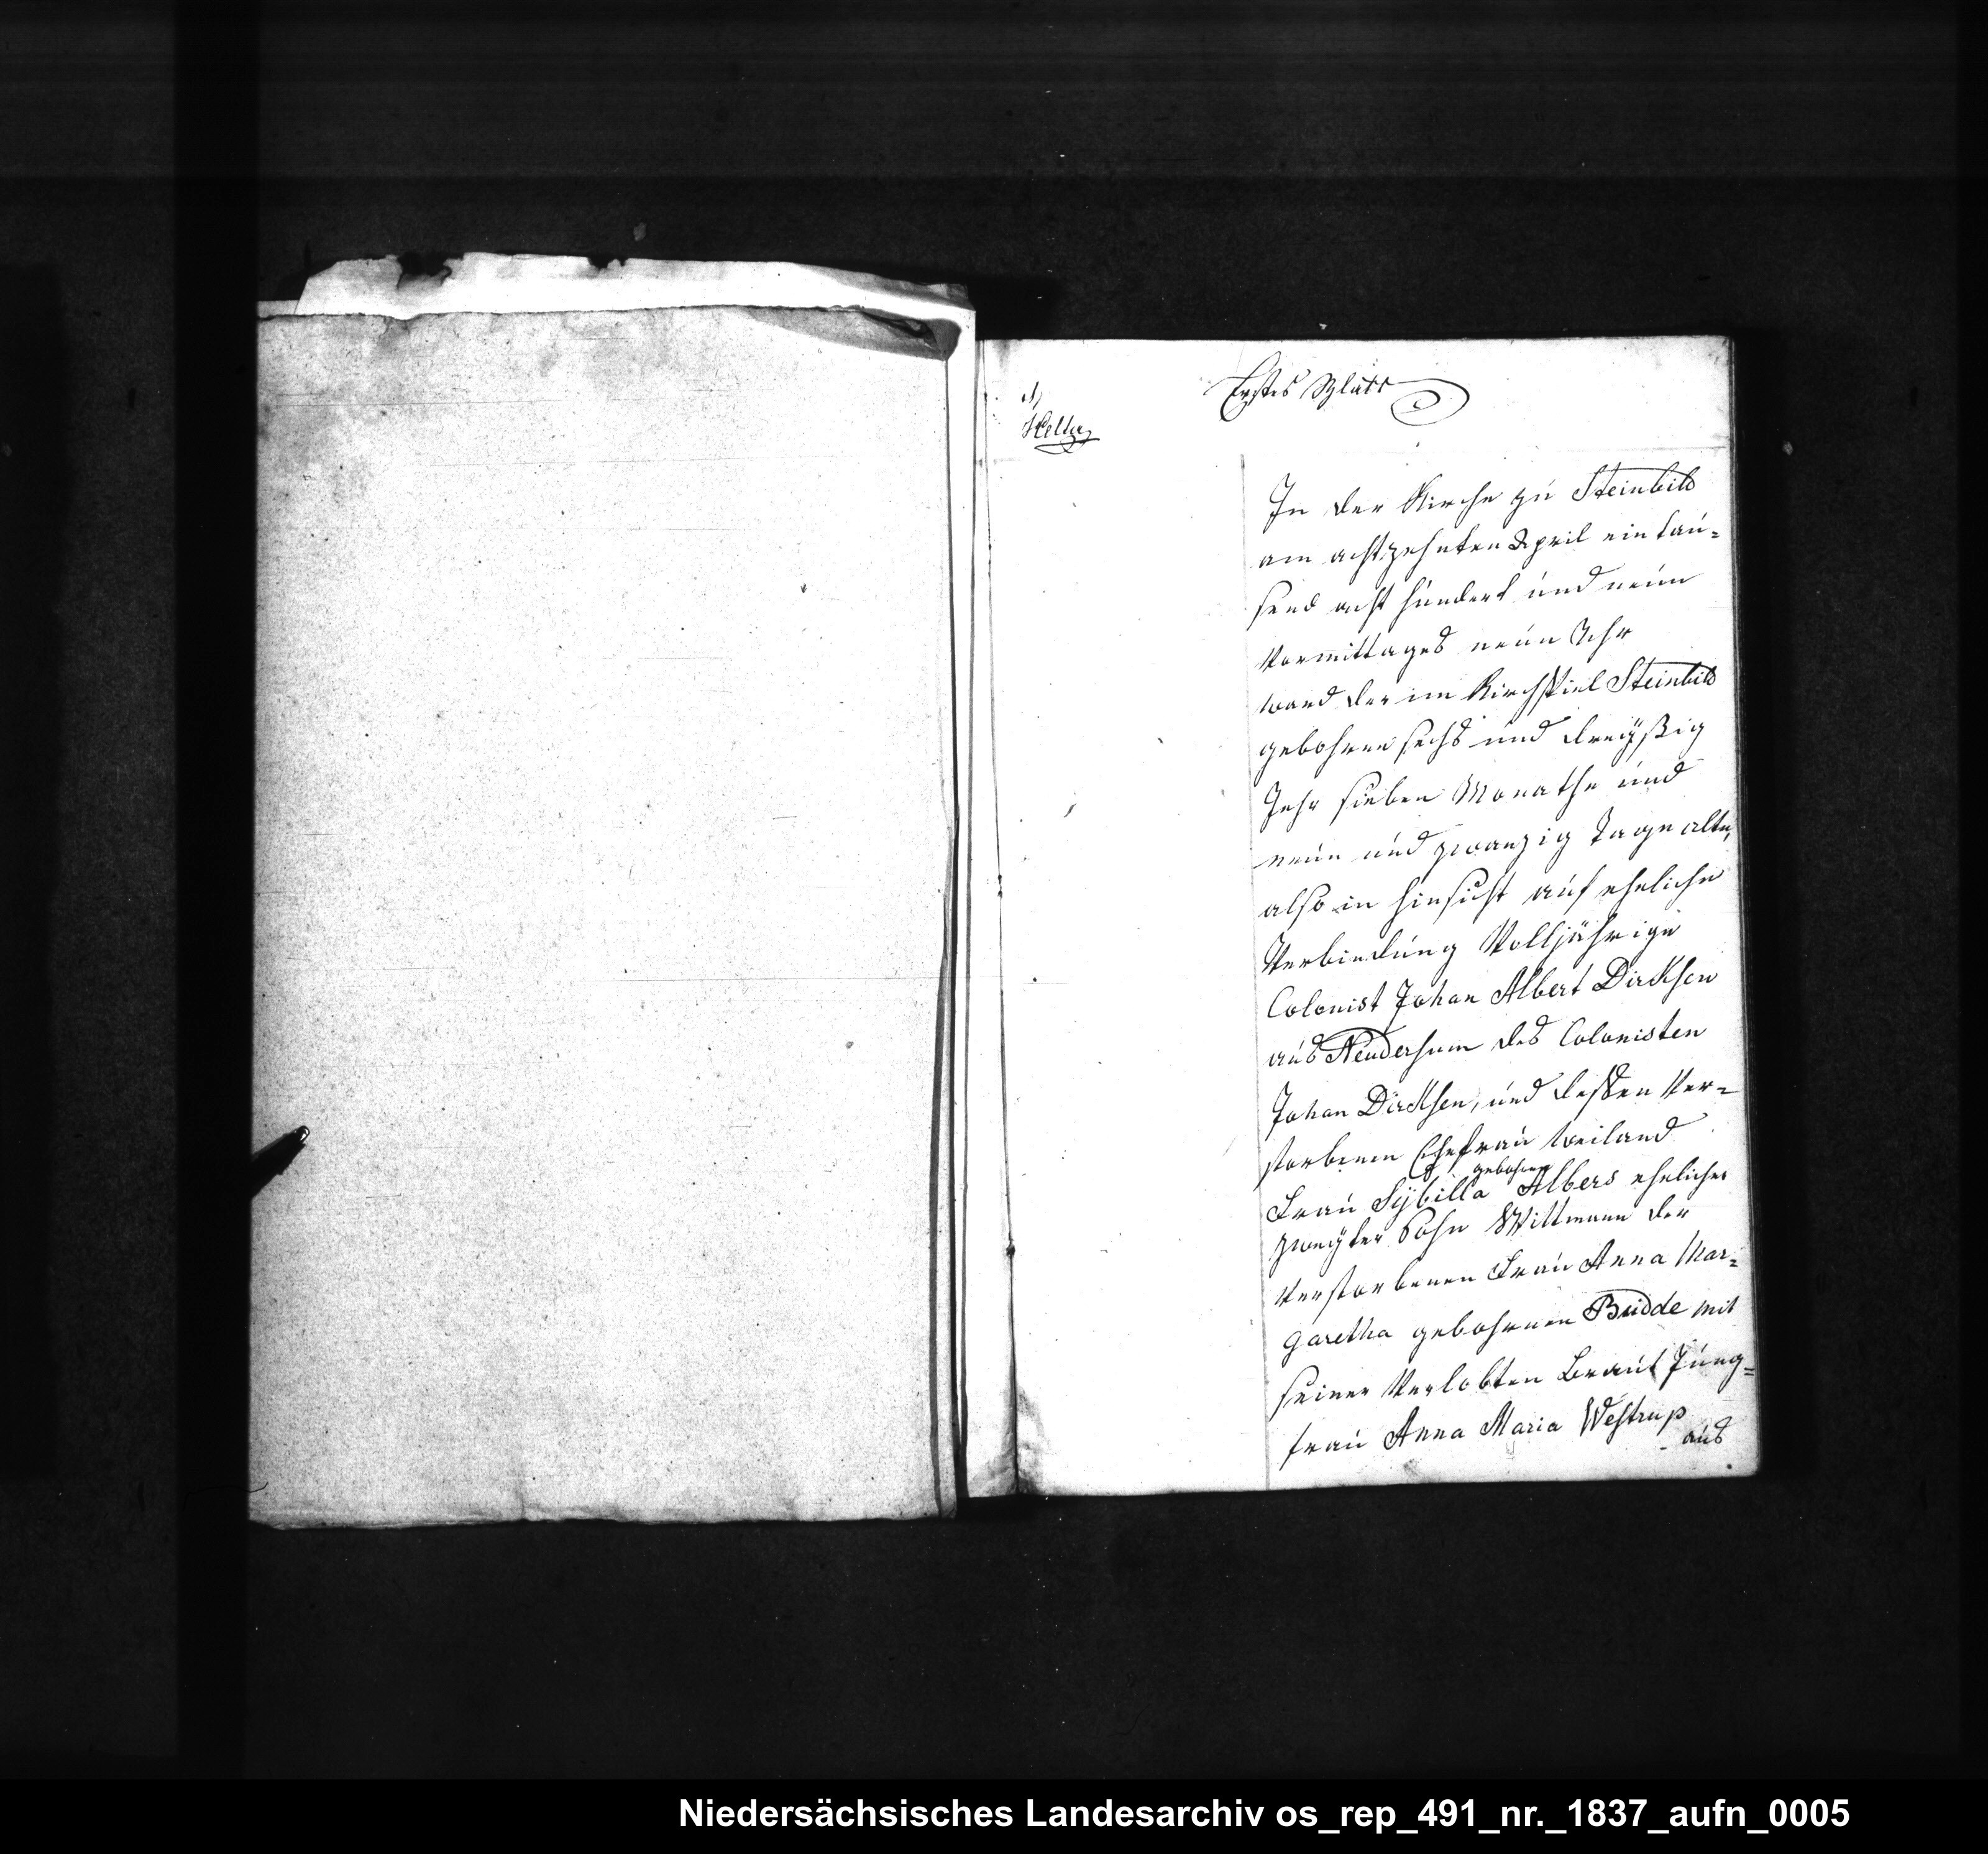 Erstes Blatt
In der Kirche zu Steinbild
am achtzehnten April ein tau=
send acht hundert und neun
Vormittages neun Uhr
ward der im Kirchspiel Steinbild
gebohren sechs und dreyßig
Jahr sieben Monathe und
neun und zwanzig Tage alte,
also in Hinsicht auf eheliche
Verbindung Volljährige
Colonist Johan Albert Dircksen
aus Neudersum des Colonisten
Johan Dircksen, und dessen Ver=
storbenen Ehefrau weiland
gebohren
Frau Sybilla Albers ehelicher
zweyter Sohn Wittmann der
Verstorbenen Frau Anna Mar=
garetha gebohrnen Budde mit
seiner Verlobten Braut Jung=
frau Anna Maria Westrup
aus
Niedersächsisches Landesarchiv os_rep_491_nr._1837_aufn_0005